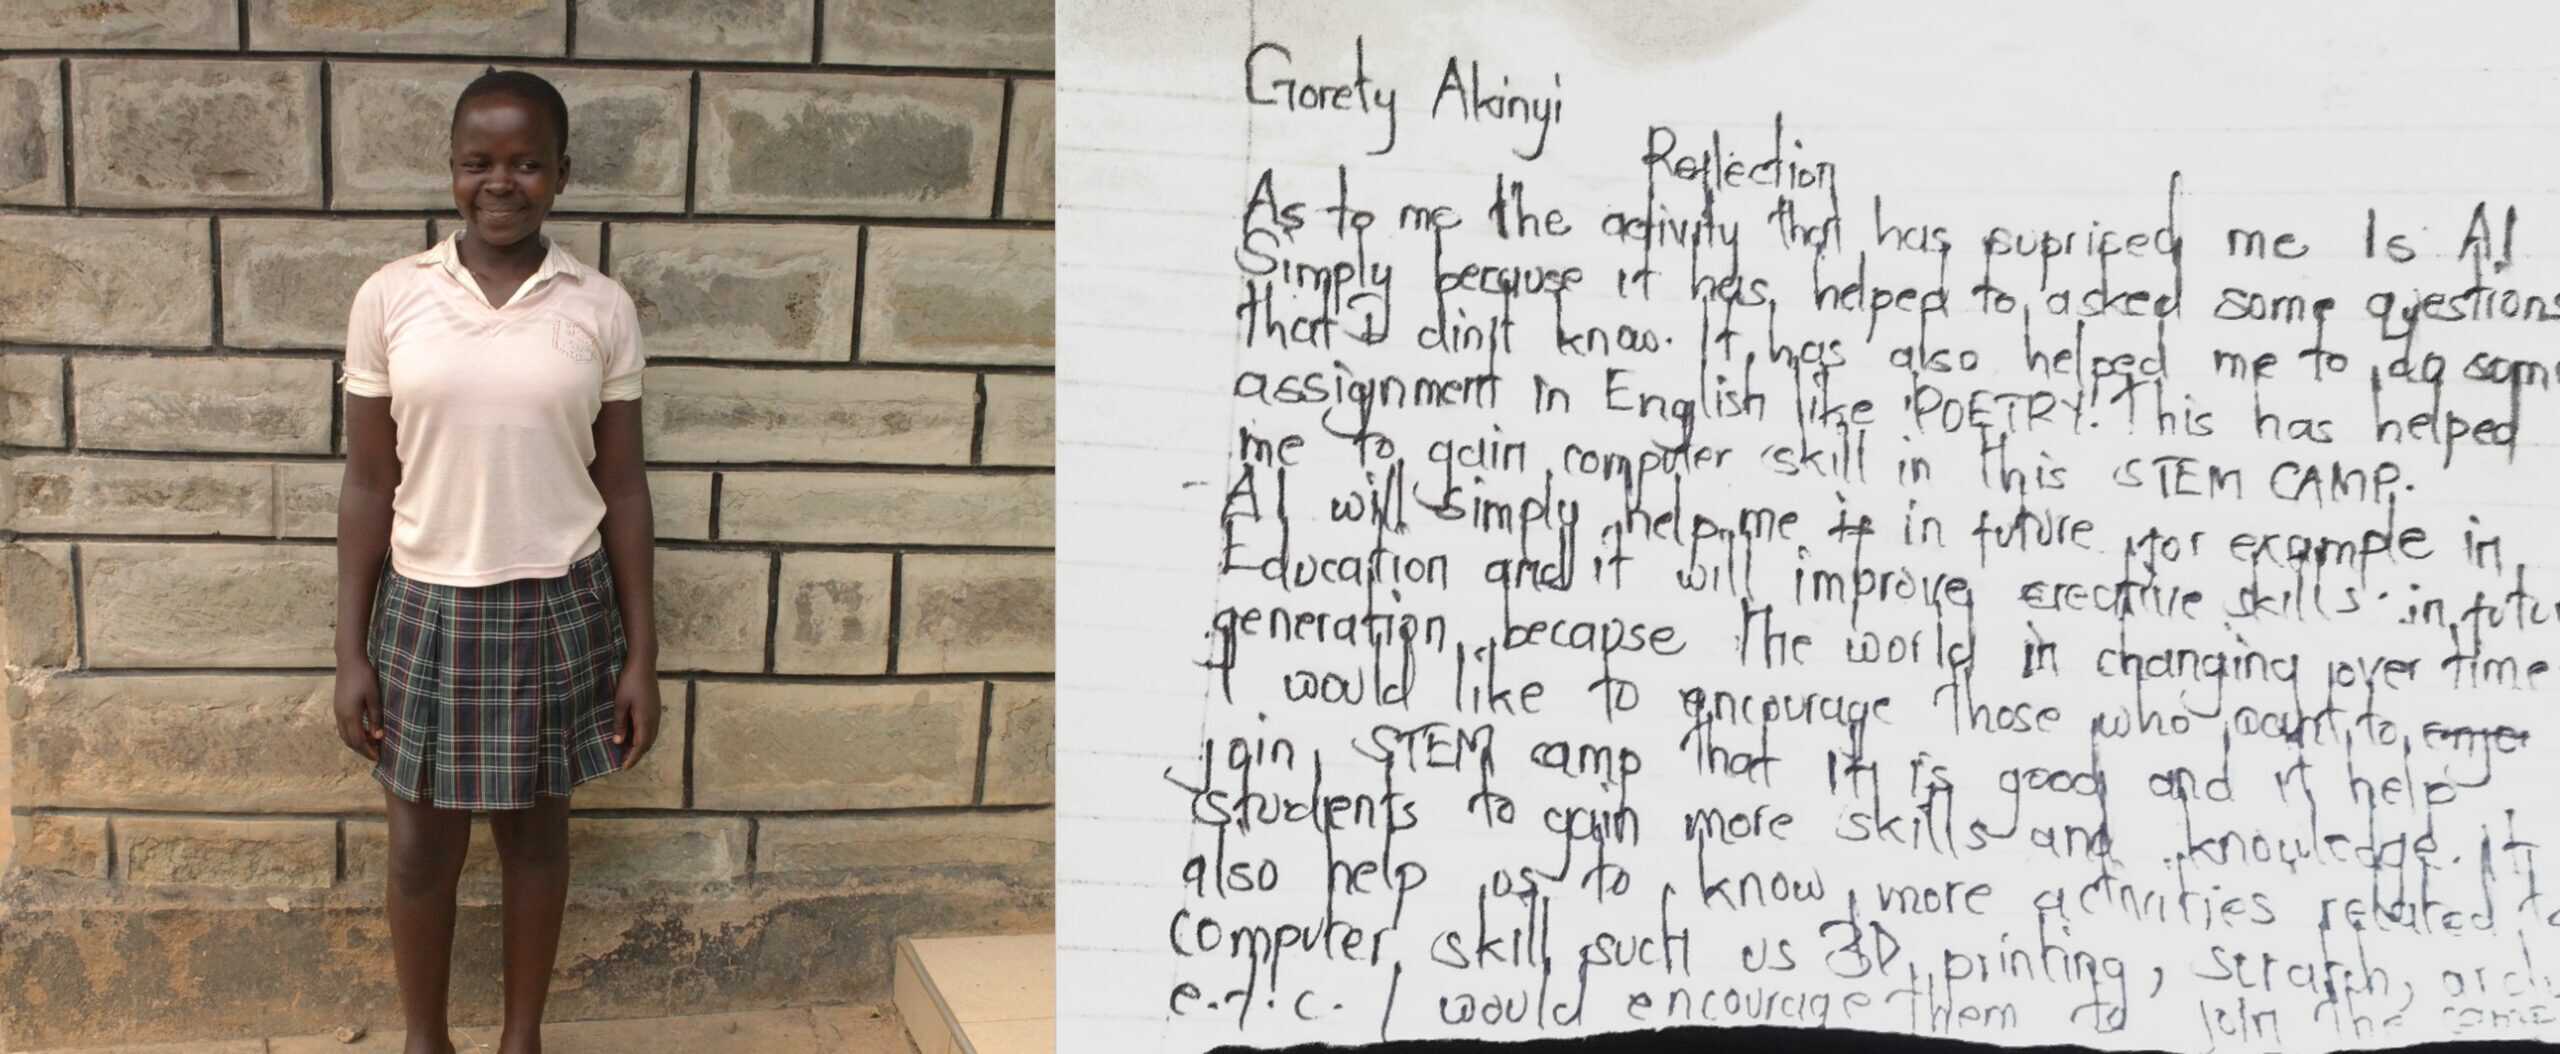 Gorety Akinyi
Reflection
As to me the activity that has supriced me Is AI
Simply because it has helped to asked some questions
that I din't know. It has also helped me to do som
assignment in English like 'POETRY! This has helped
me to gain computer skill in this STEM CAMP.
AI will simply help me in future for example in
Education and it will improve creative skills in futur
generation because the world in changing over time
I would like to encourage those who want to
join STEM camp that it is good and it help
students to gain more skills and knowledge. It
also help us to know more activities related to
computer skill such us 3D printing, scratch,
e.t.c. I would encourage them to join the